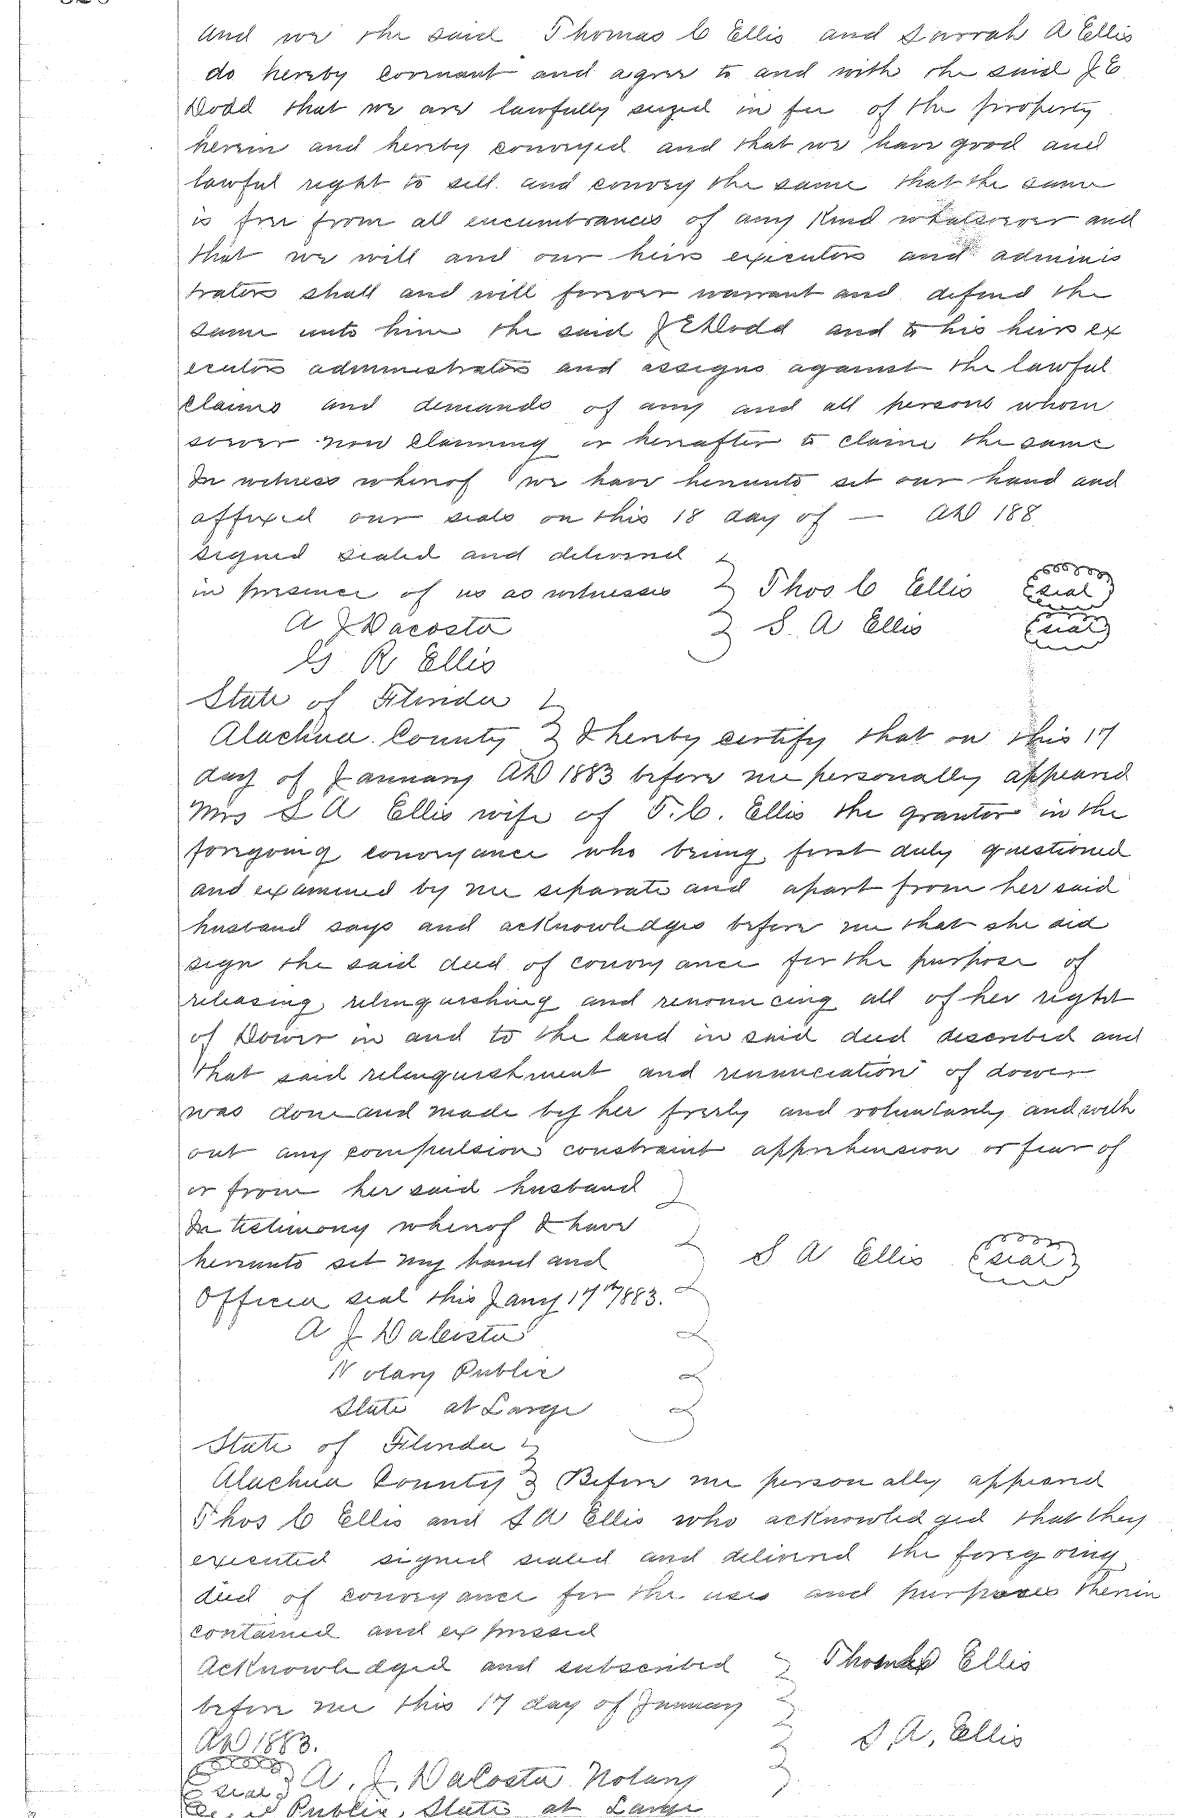 and we the said Thomas C Ellis and Sarrah A Ellis
do hereby covenant and agree to and with the said J E
Dodd that we are lawfully seized in fee of the property
herein and hereby conveyed and that we have good and
lawful right to sell and convey the same that the same
is free from all encumbrances of any Kind whatsoever and
that we will and our heirs executors and adminis
trators shall and will forever warrant and defend the
same unto him the said J E Dodd and to his heirs ex
ecutors administrators and assigns against the lawful
claims and demands of any and all persons whom
soever now claiming or hereafter to claim the same
In witness whereof we have hereunto set our hand and
affixed our seals on this 18 day of — AD 188
signed sealed and delivered
in presence of us as witnesses } Thos C Ellis (seal)
A J Dacosta } S. A Ellis (seal)
G R Ellis
State of Florida }
Alachua County } I hereby certify that on this 17
day of January AD 1883 before me personally appeared
Mrs S A Ellis wife of T. C. Ellis the grantor in the
foregoing conveyance who being first duly questioned
and examined by me separate and apart from her said
husband says and acknowledges before me that she did
sign the said deed of conveyance for the purpose of
releasing relinquishing and renouncing all of her right
of Dower in and to the land in said deed described and
that said relinquishment and renunciation of dower
was done and made by her freely and voluntarily and with
out any compulsion constraint apprehension or fear of
or from her said husband
In testimony whereof I have
hereunto set my hand and S A Ellis (seal)
Official seal this Jany 17th 1883.
A J DaCosta
Notary Public
State at Large
State of Florida }
Alachua County } Before me personally appeared
Thos C Ellis and S A Ellis who acknowledged that they
executed signed sealed and delivered the foregoing
deed of conveyance for the uses and purposes therein
contained and expressed
Acknowledged and subscribed } Ellis
before me this 17 day of January
AD 1883. S. A. Ellis
(seal) A. J. DaCosta Notary
Public, State at Large